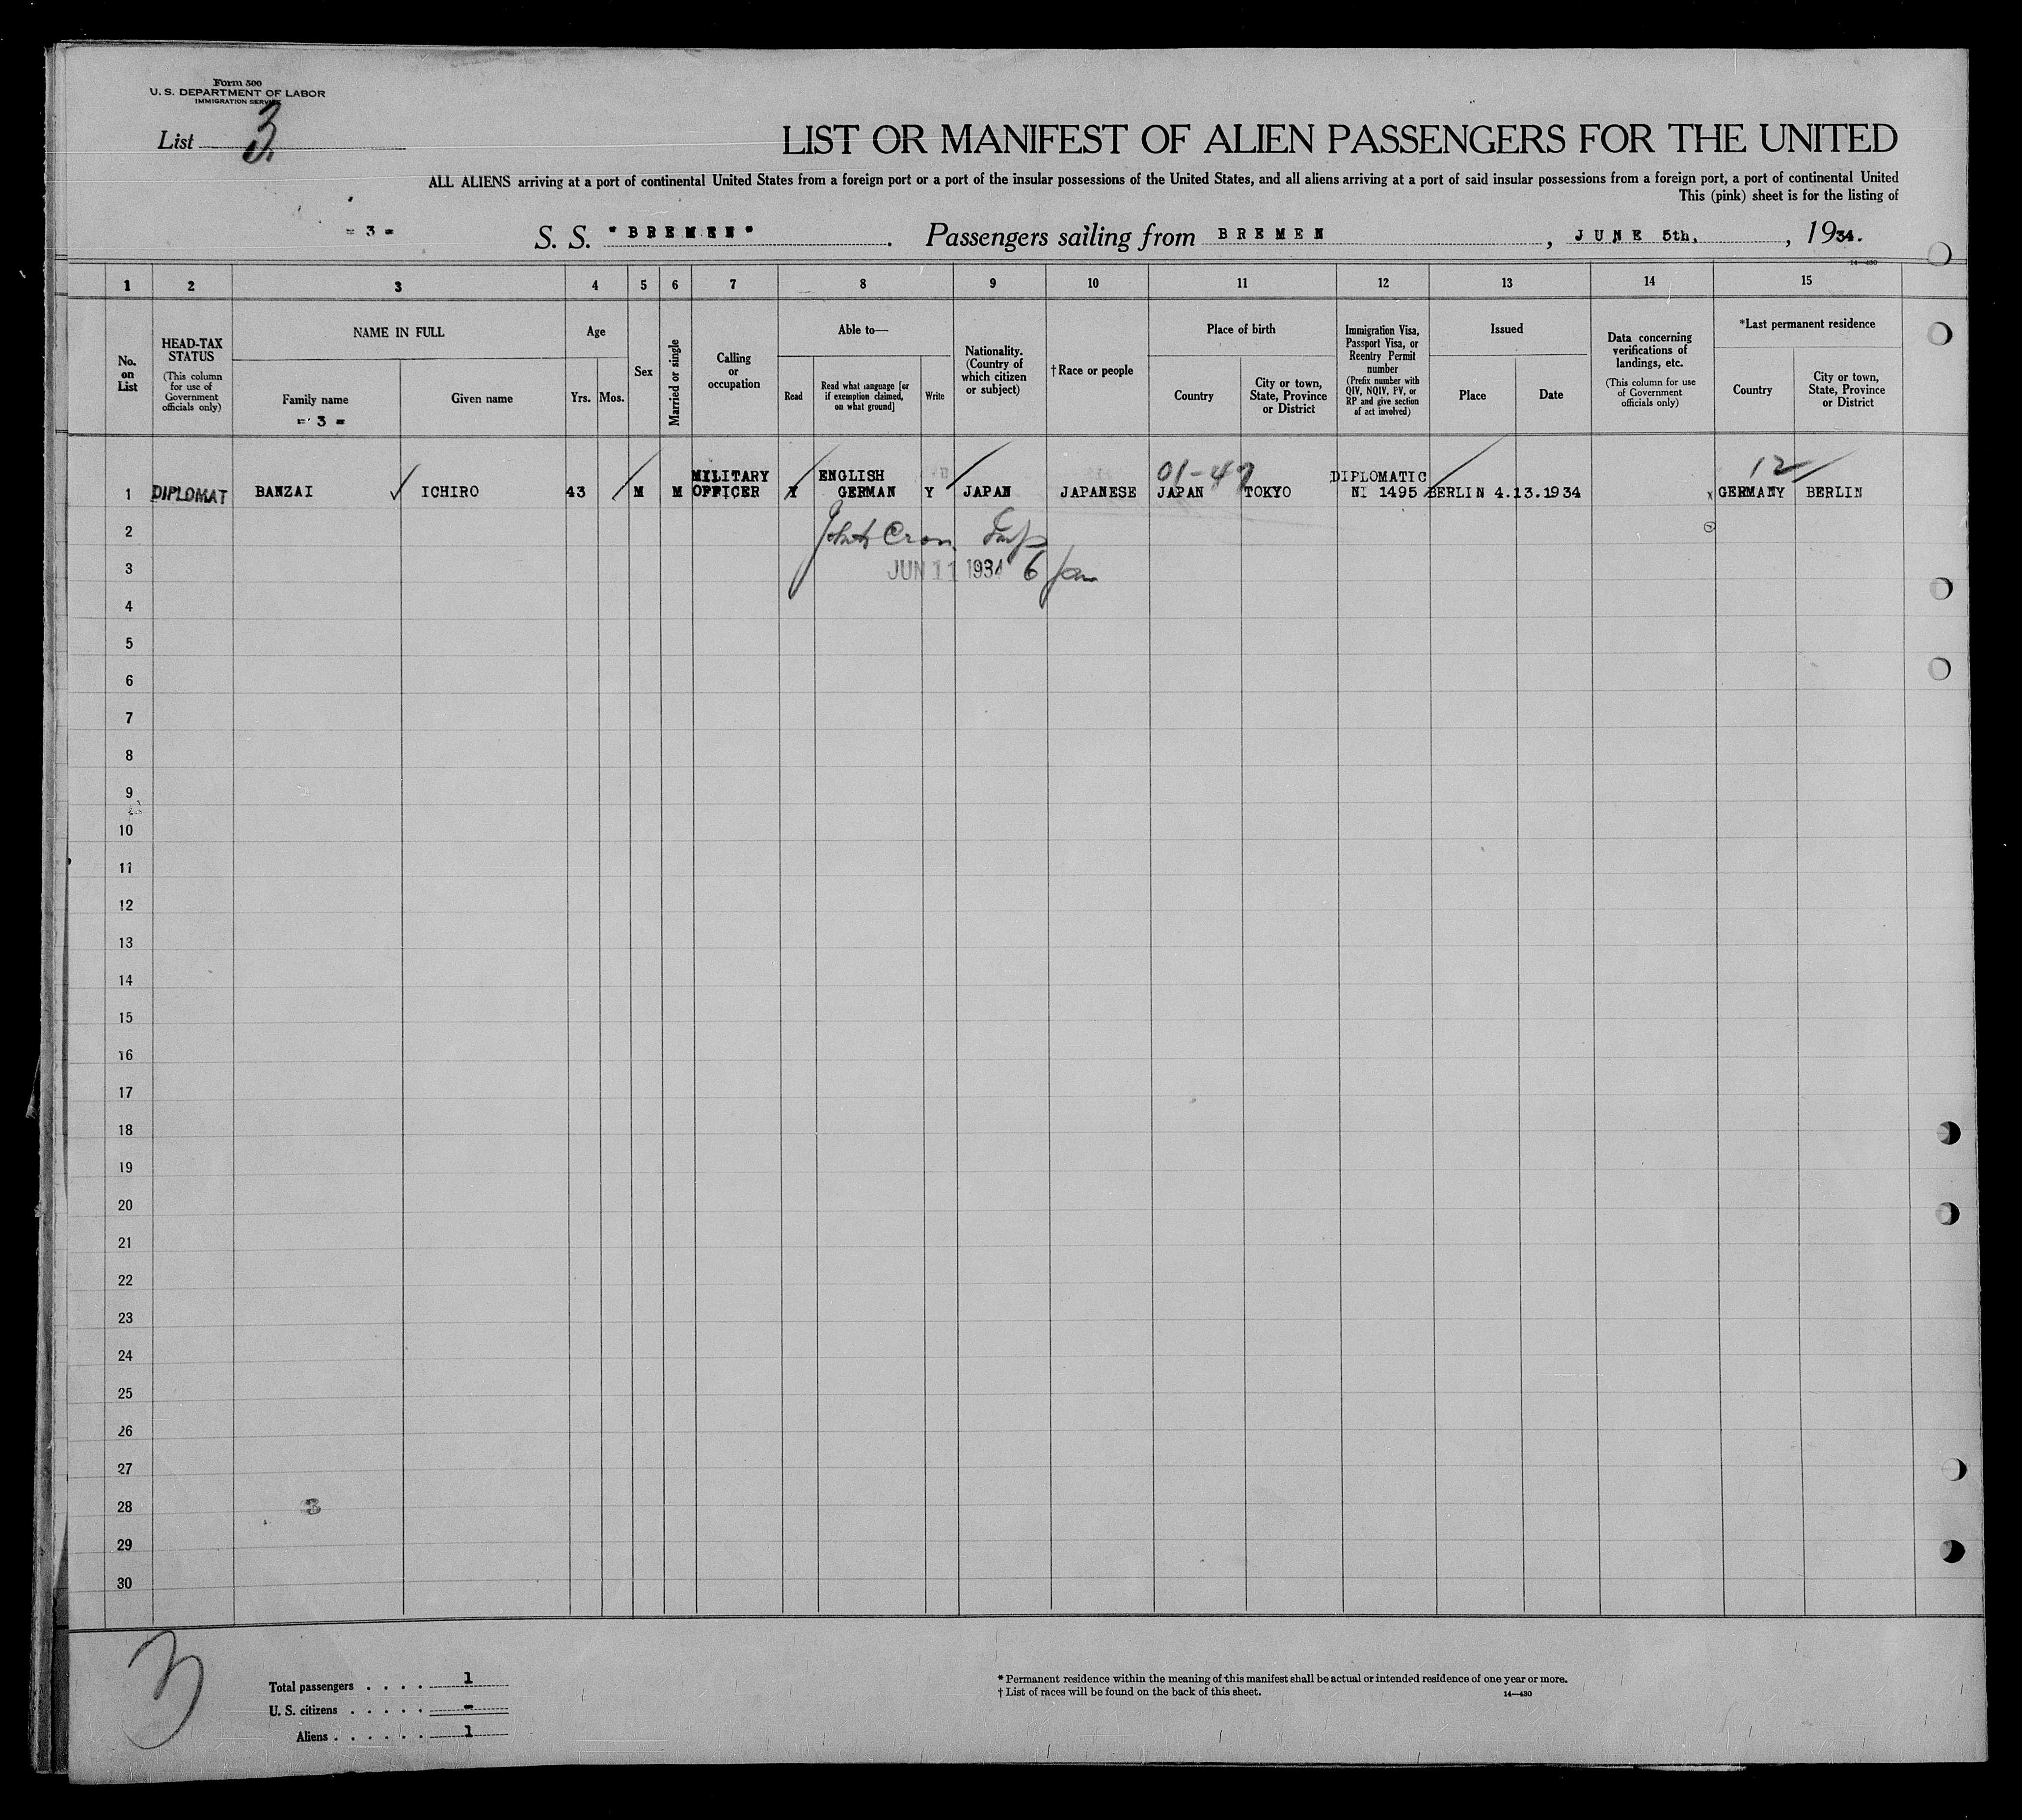 Form 500
U. S. DEPARTMENT OF LABOR
IMMIGRATION SERVICE
List 3
LIST OR MANIFEST OF ALIEN PASSENGERS FOR THE UNITED
ALL ALIENS arriving at a port of continental United States from a foreign port or a port of the insular possessions of the United States, and all aliens arriving at a port of said insular possessions from a foreign port, a port of continental United
This (pink) sheet is for the listing of
- 3 - S. S. "BREMEN". Passengers sailing from BREMEN, JUNE 5th., 1934.
14—430
1 2 3 4 5 6 7 8 9 10 11 12 13 14 15
No. on List
HEAD-TAX STATUS
(This column for use of Government officials only)
NAME IN FULL
Family name
- 3 -
Given name
Age
Yrs. Mos.
Sex
Married or single
Calling or occupation
Able to—
Read
Read what language [or if exemption claimed, on what ground]
Write
Nationality. (Country of which citizen or subject)
†Race or people
Place of birth
Country
City or town, State, Province or District
Immigration Visa, Passport Visa, or Reentry Permit number
(Prefix number with QIV, NQIV, PV, or RP and give section of act involved)
Issued
Place
Date
Data concerning verifications of landings, etc.
(This column for use of Government officials only)
*Last permanent residence
Country
City or town, State, Province or District
MILITARY ENGLISH 01-47 DIPLOMATIC 12
1 DIPLOMAT BANZAI ✓ ICHIRO 43 M M OFFICER Y GERMAN Y JAPAN JAPANESE JAPAN TOKYO NI 1495 BERLIN 4.13.1934 x GERMANY BERLIN
2
3 JUN 11 1934 6
4
5
6
7
8
9
10
11
12
13
14
15
16
17
18
19
20
21
22
23
24
25
26
27
28 3
29
30
3
Total passengers . . . . 1
U. S. citizens . . . . . -
Aliens . . . . . . 1
* Permanent residence within the meaning of this manifest shall be actual or intended residence of one year or more.
† List of races will be found on the back of this sheet.
14—430